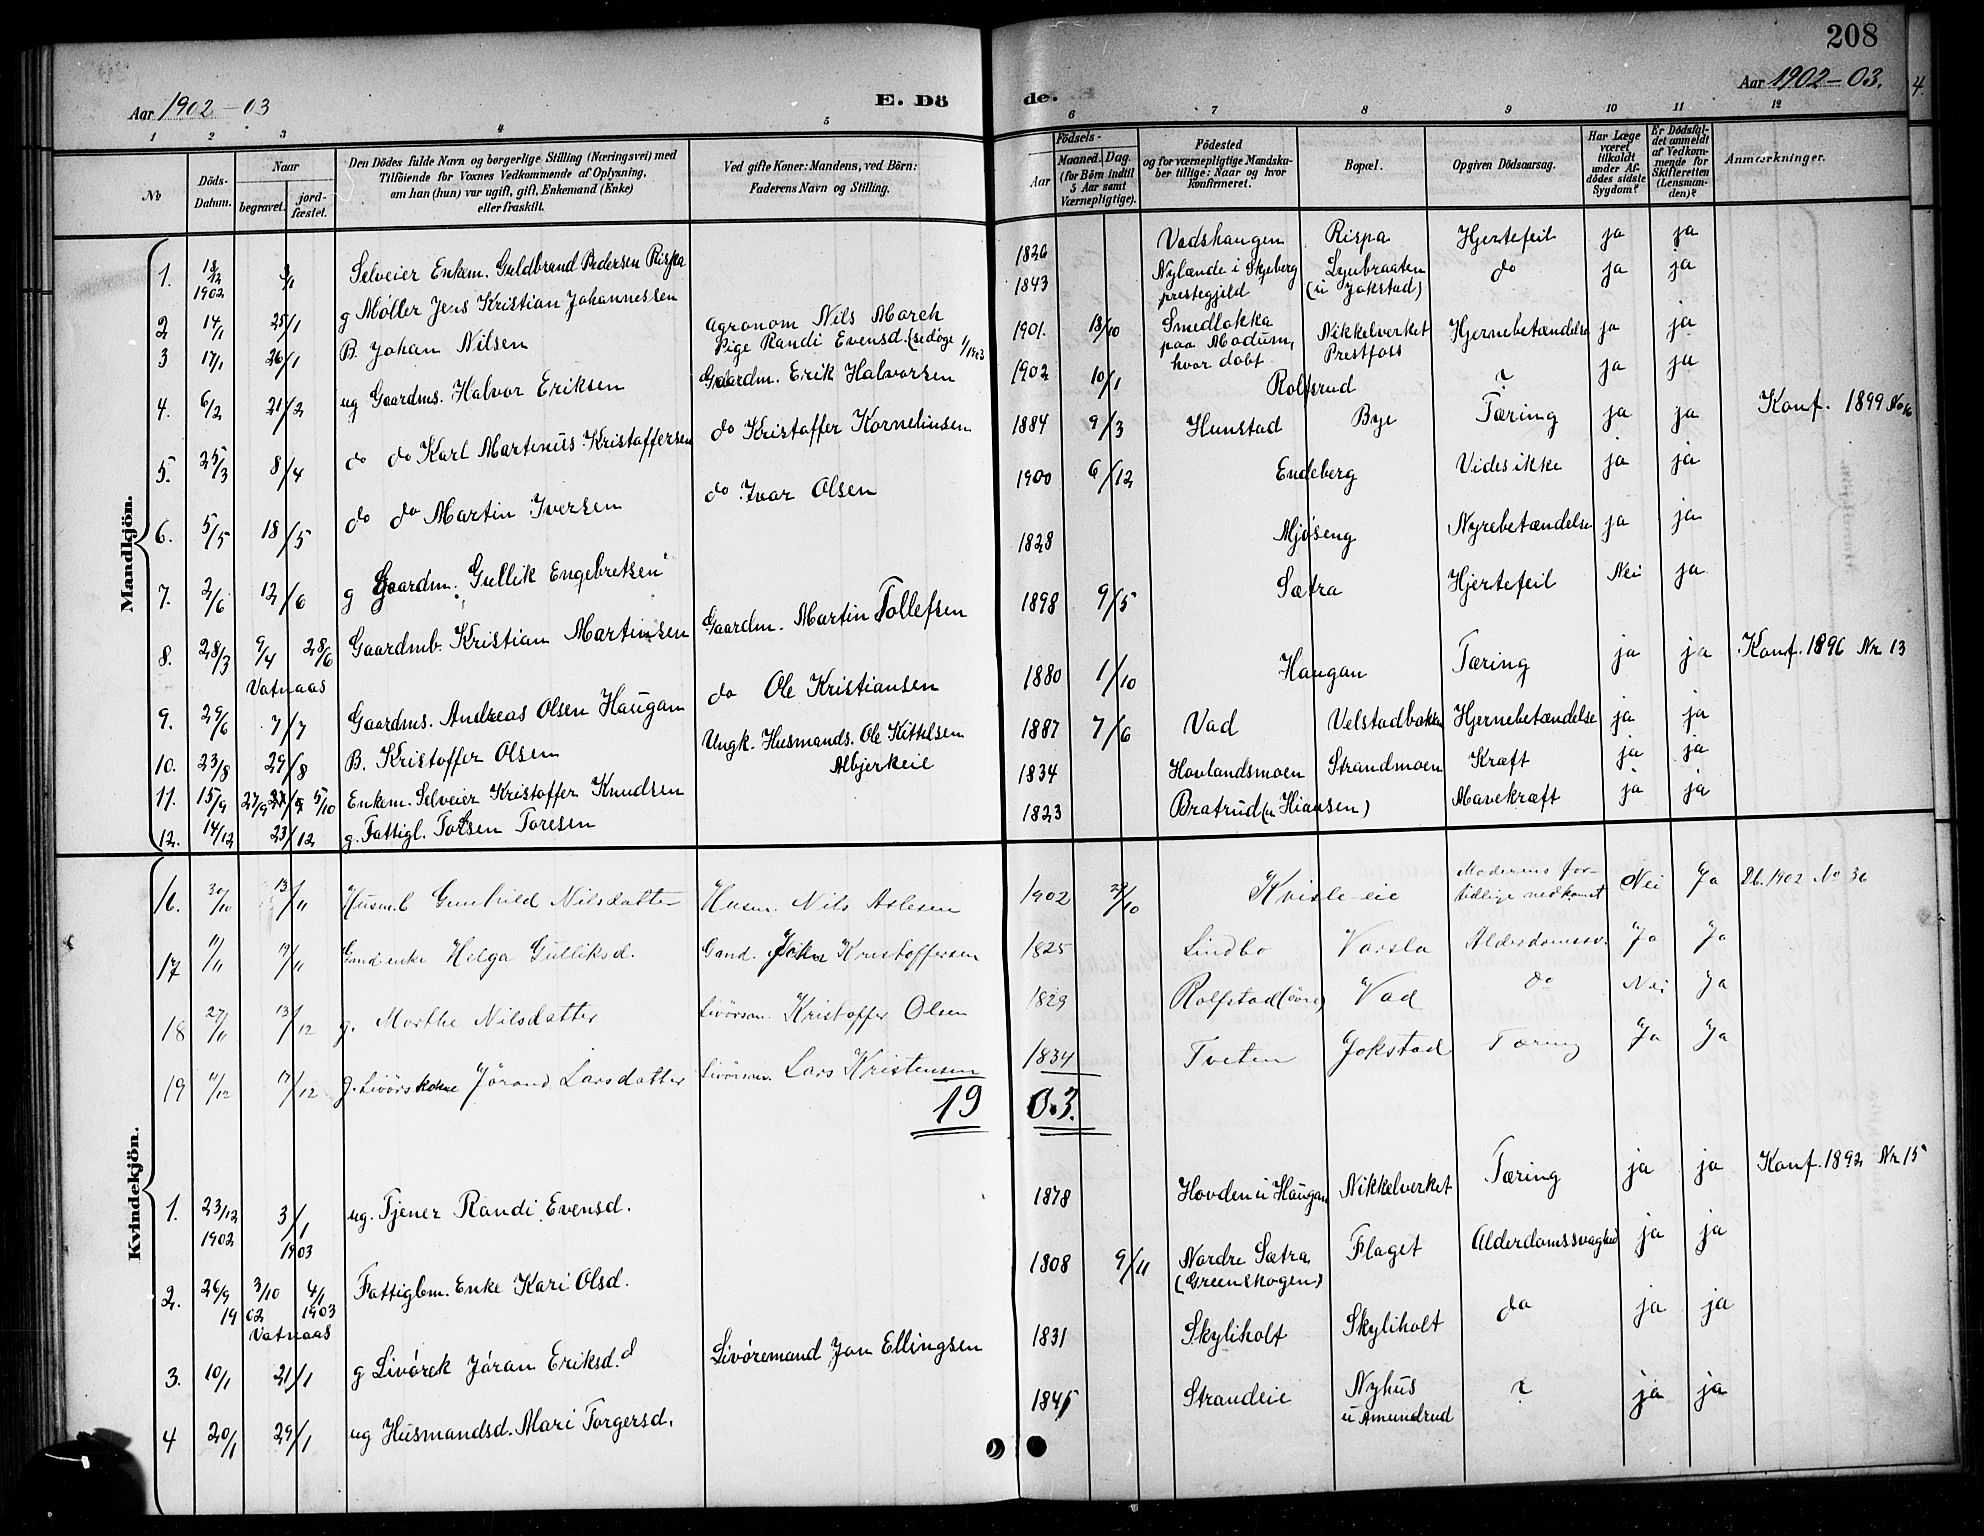 208
Aar 1902-03
E. Dö
de.
Aar 1902-03.
4.
1 2 3 4 5 6 7 8 9 10 11 12
No
Döds-Datum.
Naar
begravet.
jord-fæstet.
Den Dödes fulde Navn og borgerlige Stilling (Næringsvei) med
Tilföiende for Voxnes Vedkommende af Oplysning,
om han (hun) var ugift, gift, Enkemand (Enke)
eller fraskilt.
Ved gifte Koner: Mandens, ved Börn:
Faderens Navn og Stilling.
Födsels-
Aar
Maaned. Dag.
(for Börn indtil
5 Aar samt
Værnepligtige).
Födested
og for værnepligtige Mandska-
ber tillige: Naar og hvor
konfirmeret.
Bopæl.
Opgiven Dödsaarsag.
Har Læge
været
tilkaldt
under Af-
dödes sidste
Sygdom?
Er Dödsfal-
det anmeldt
af Vedkom-
mende for
Skifteretten
(Lensman-
den)?
Anmærkninger.
Mandkjön.
1. 18/12 1902 3/1 Selveier Enkem. Guldbrand Pedersen Rispa 1826 Vadshaugen Rispa Hjertefeil ja ja
2 14/1 25/1 g Møller Jens Kristian Johannessen 1843 Nylænde i Skjeberg prestegjeld Lynbraaten (u Jokstad) do ja ja
3 17/1 26/1 B. Johan Nilsen Agronom Nils March Pige Randi Evensd. (se døge 1/1903 1901. 13/10 Smedløkka paa Modum, hvor døbt Nikkelverket Prestfoss Hjernebetændelse ja ja
4. 6/2 21/2 ug Gaardms. Halvor Eriksen Gaardm. Erik Halvorsen 1902 10/1 Rolfsrud ? ja ja
5. 25/3 8/4 do do Karl Martinus Kristoffersen do Kristoffer Kornelinsen 1884 9/3 Hunstad Bye Tæring ja ja Konf. 1899 No 6
6. 5/5 18/5 do do Martin Iversen do Ivar Olsen 1900 6/12 Endeberg Vides ikke ja ja
7. 2/6 12/6 g Gaardm. Gullik Engebretsen 1828 Mjøseng Nyrebetændelse ja ja
8. 28/3 9/4 28/6 Vatnaas Gaardmb. Kristian Martinsen Gaardm. Martin Tollefsen 1898 9/5 Sætra Hjertefeil Nei ja
9. 29/6 7/7 Gaardms. Andreas Olsen Haugan do Ole Kristiansen 1880 1/10 Haugan Tæring ja ja Konf. 1896 Nr. 13
10. 23/8 29/8 B. Kristoffer Olsen Ungk. Husmands. Ole Kittelsen Albjerkeie 1887 7/6 Vad Velstadbakken Hjernebetændelse ja ja
11. 15/9 27/9 5/10 Enkem. Selveier Kristoffer Knudsen 1834 Hovlandsmoen Strandmoen Kræft ja ja
12. 14/12 23/12 g. Fattigl. Tolsen Toresen 1823 Bratrud (u Hiansen) Mavekræft ja ja
Kvindekjön.
16. 30/10 13/11 Husm.b Gunhild Nilsdatter Husm. Nils Aslesen 1902 29/10 Kvisle-eie Moderens for-tidlige nedkomst Nei Ja Db. 1902 No 36
17 11/11 17/11 Gmd.enke Helga Gulliksd. Gmd. Kristoffersen 1825 Lindbo Varsla Alderdomssv. Ja Ja
18 27/11 13/12 g. Marthe Nilsdatter Livörsm. Kristoffer Olsen 1829 Rolfstad (övre) Vad do Nei Ja
19 11/12 17/12 g. Livörskone Jörand Larsdatter Livörsm. Lars Kristensen 1834 Tveten Jokstad Tæring Ja Ja
1903.
1. 23/12 1902 3/1 1903 ug. Tjener Randi Evensd. 1878 Hovden u Haugan Nikkelverket Tæring ja ja Konf. 1892 Nr. 15
2. 26/9 1902 3/10 4/1 1903 Vatnaas Fattiglem. Enke Kari Olsd. 1808 9/11 Nordre Sætra (Greenskogen) Flaget Alderdomssvaghed ja ja
3. 10/1 21/1 g Livørek Jøran Eriksd. Livøremand Jon Ellingsen 1831 Skyliholt Skyliholt do ja ja
4 20/1 29/1 ug Husmandsd. Mari Torgersd. 1845 Strandeie Nyhus u Amundrud ? ja ja